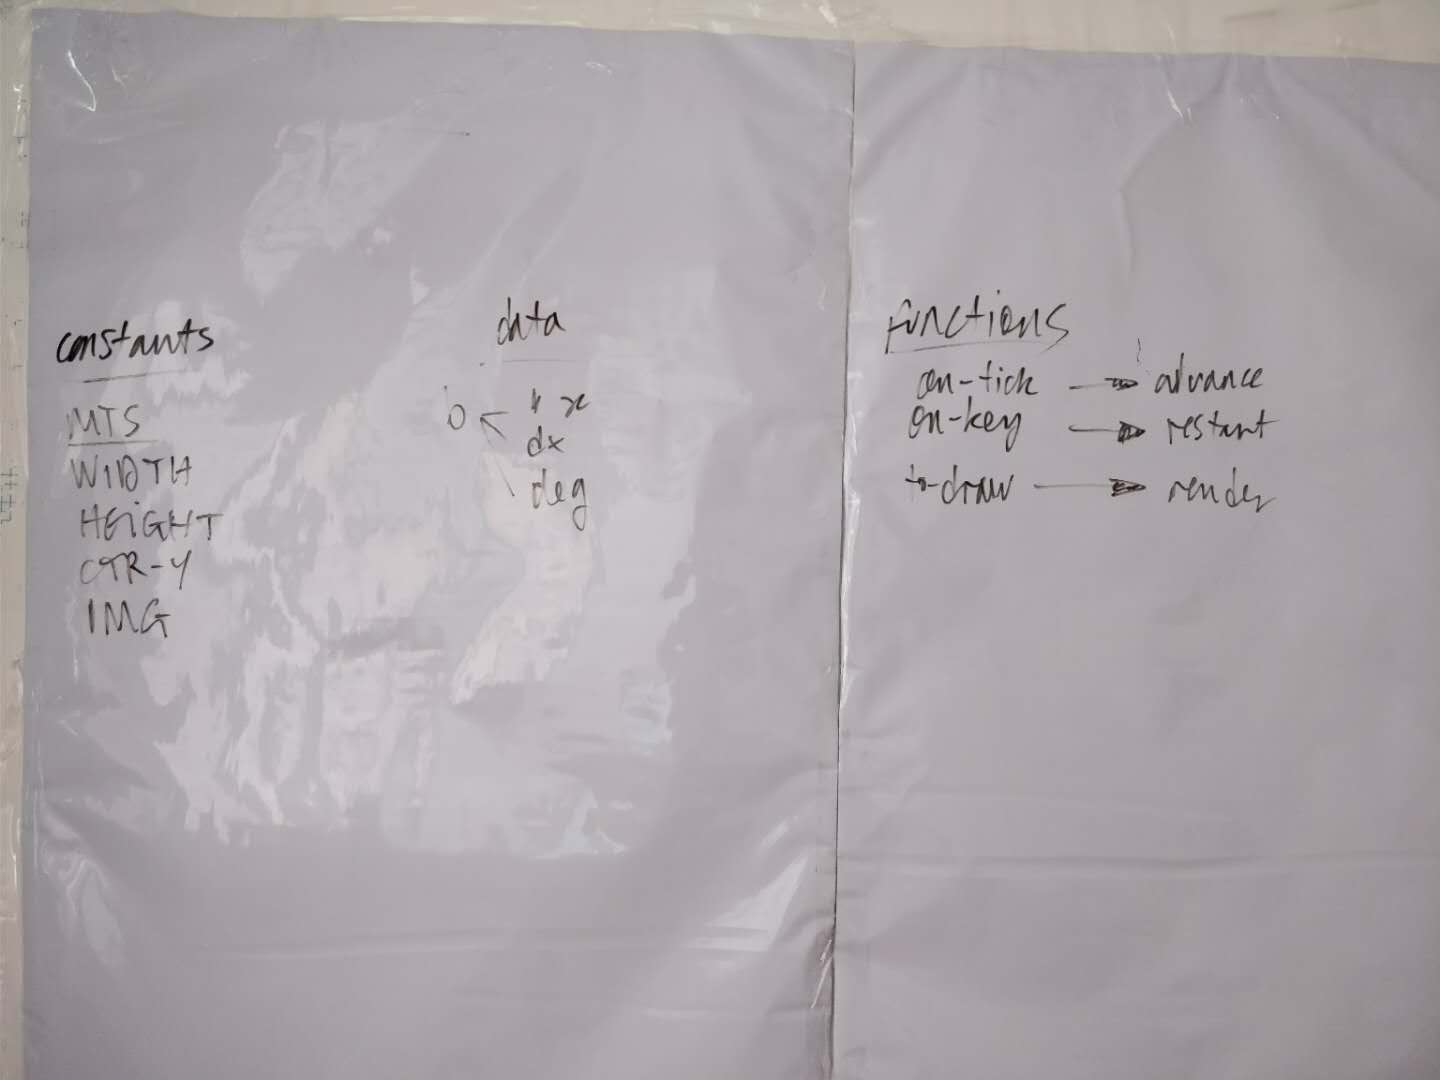 constants
MTS
WIDTH
HEIGHT
CTR-Y
IMG
data
x
dx
deg
functions
on-tick → advance
on-key → restart
to-draw → render